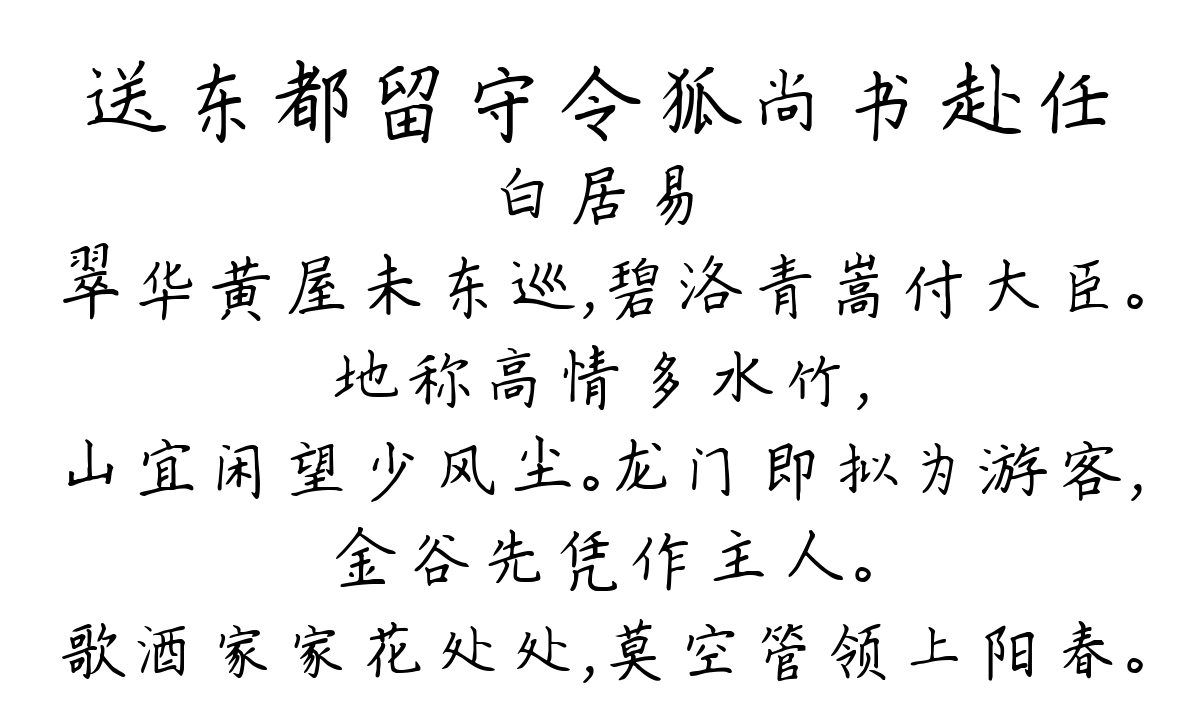 送东都留守令狐尚书赴任
白居易
翠华黄屋未东巡,碧洛青嵩付大臣。
地称高情多水竹,
山宜闲望少风尘。龙门即拟为游客,
金谷先凭作主人。
歌酒家家花处处,莫空管领上阳春。